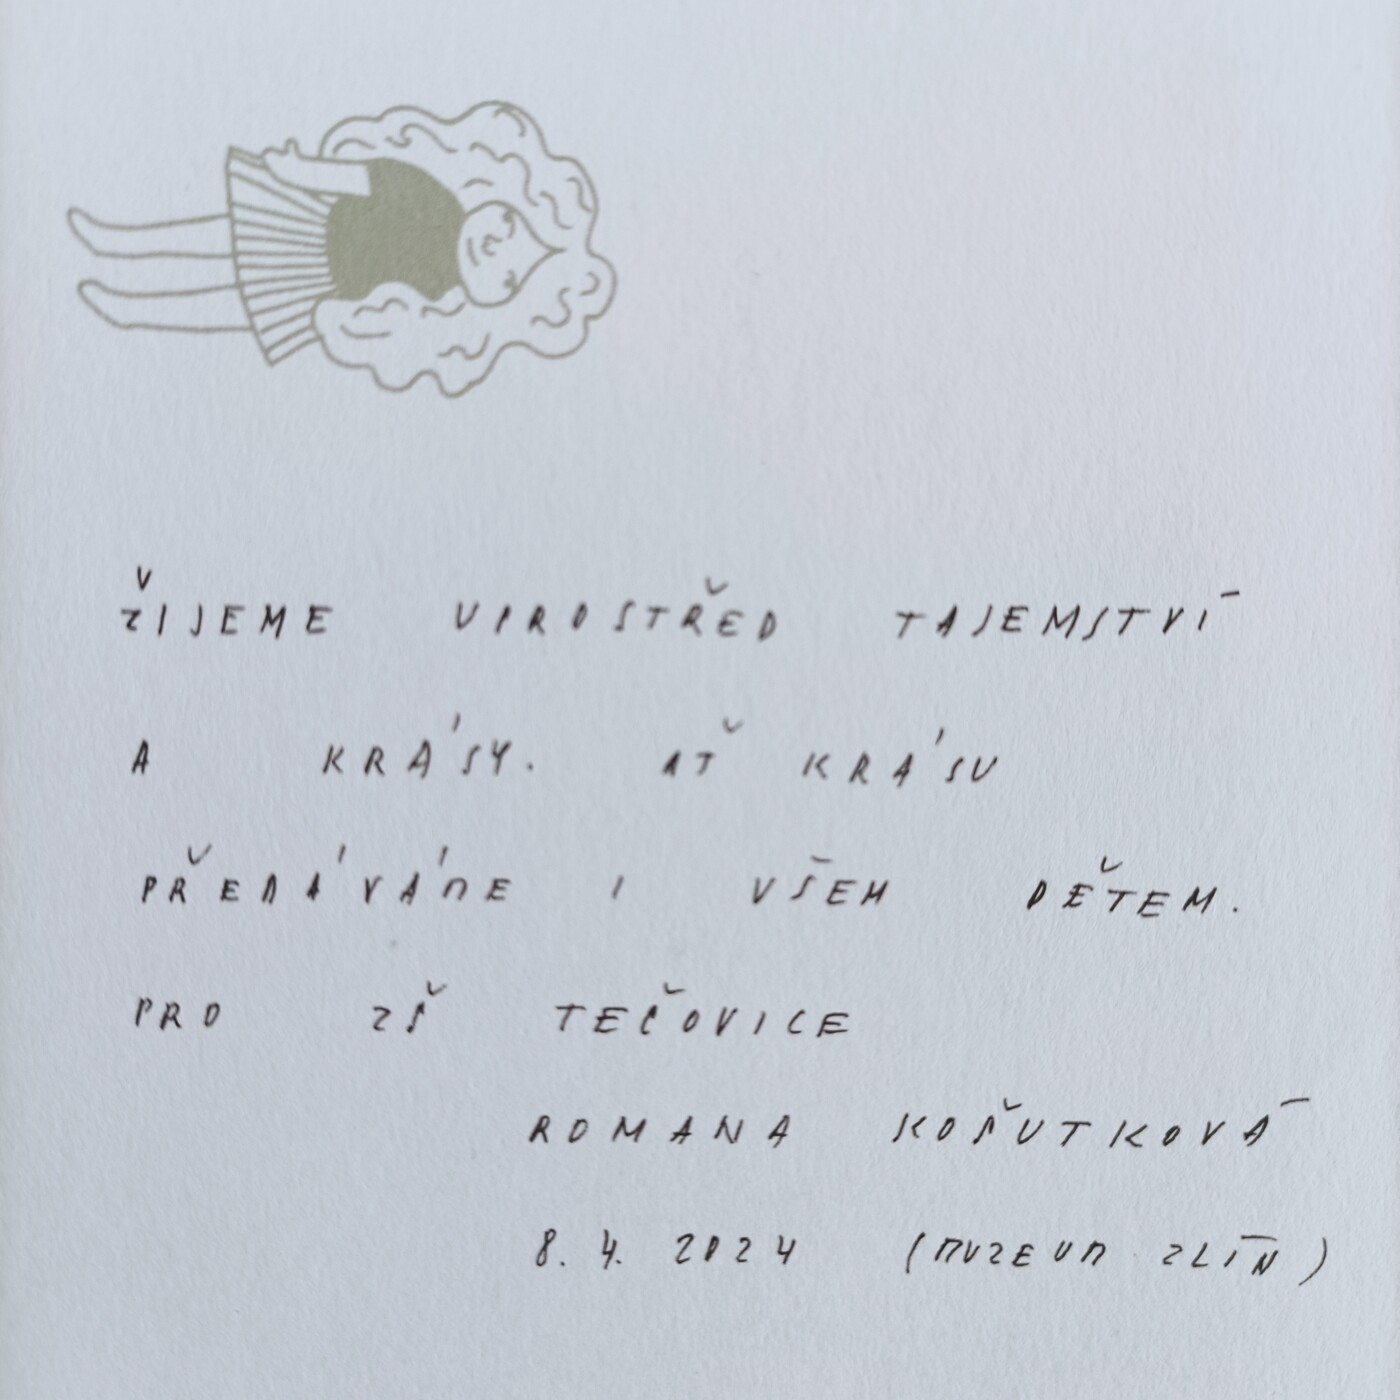 ŽIJEME UPROSTŘED TAJEMSTVÍ
A KRÁSY. AŤ KRÁSU
PŘEDÁVÁME I VŠEM DĚTEM.
PRO ZŠ TEČOVICE
ROMANA KOŠUTKOVÁ
8. 4. 2024 (MUZEUM ZLÍN)